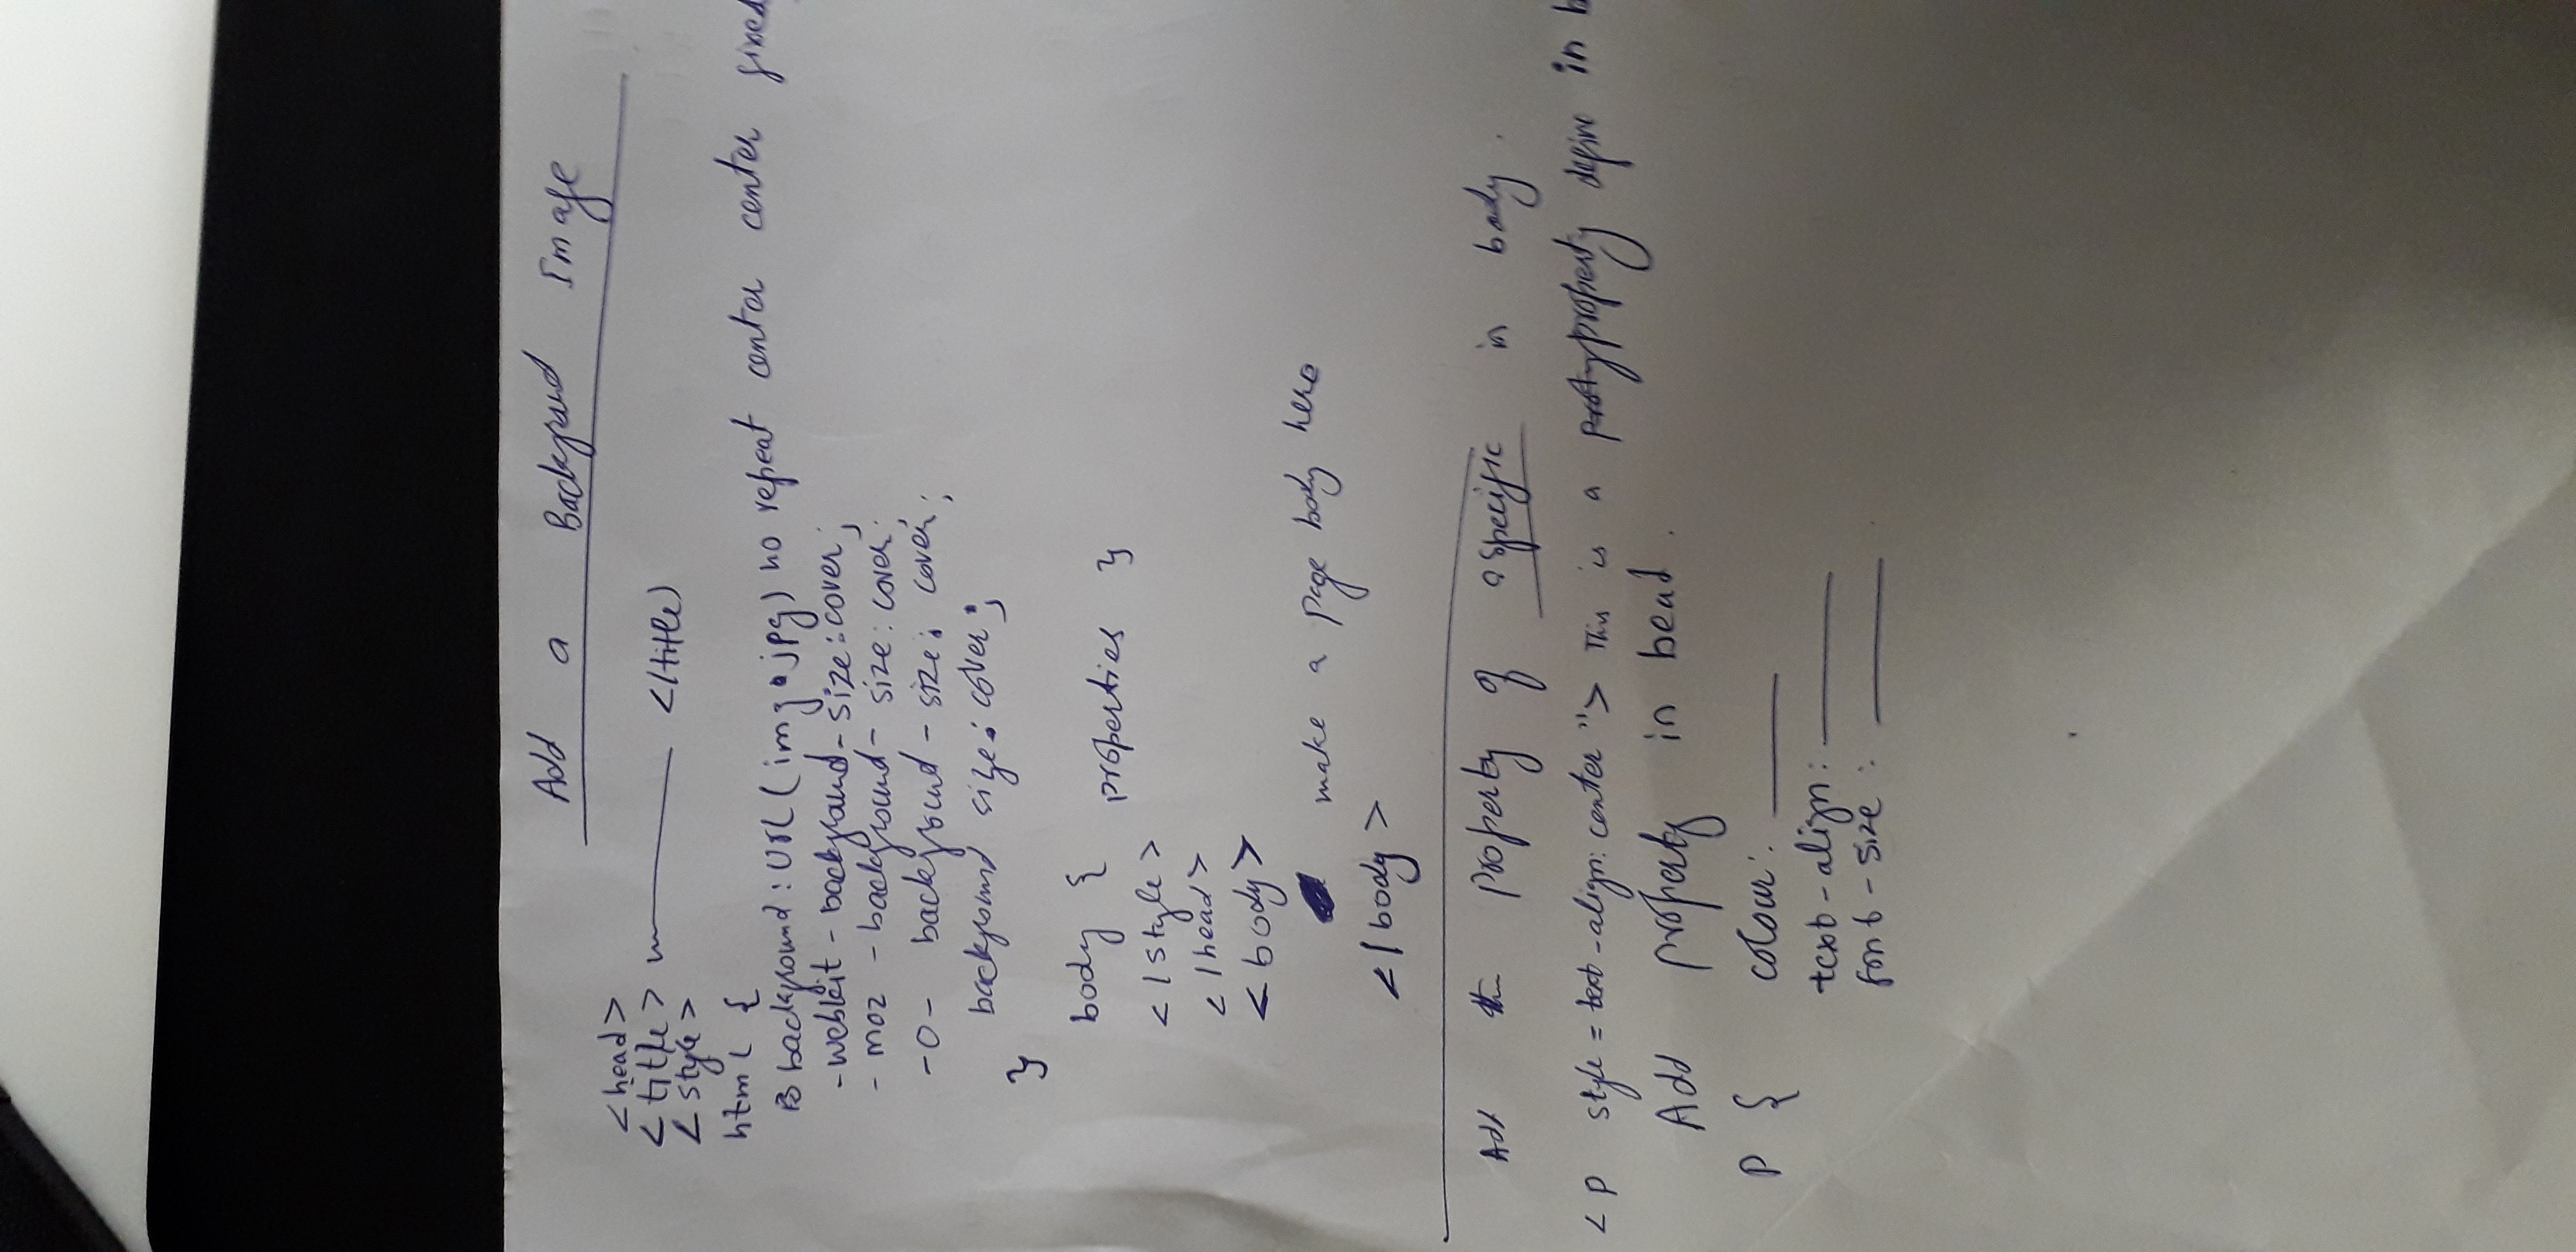 Add a Background Image
<head>
<title> ——— </title>
<style>
html {
background: url(img.jpg) no repeat center center fixed
-webkit-background-size: cover;
-moz-background-size: cover;
-o-background-size: cover;
background size: cover;
}
body { properties }
</style>
</head>
<body>
make a page body here
</body>
Add the property of a specific in body.
<p style = text-align: center"> This is a property define in
Add property in head.
p { colour: ———
text-align: ———
font-size: ———